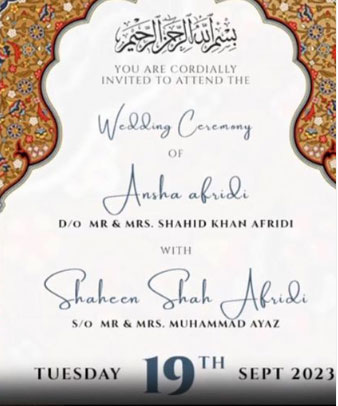 بسم الله الرحمن الرحيم
YOU ARE CORDIALLY
INVITED TO ATTEND THE
Wedding Ceremony
OF
Ansha afridi
D/O MR & MRS. SHAHID KHAN AFRIDI
WITH
Shaheen Shah Afridi
S/O MR & MRS. MUHAMMAD AYAZ
TUESDAY 19TH SEPT 2023